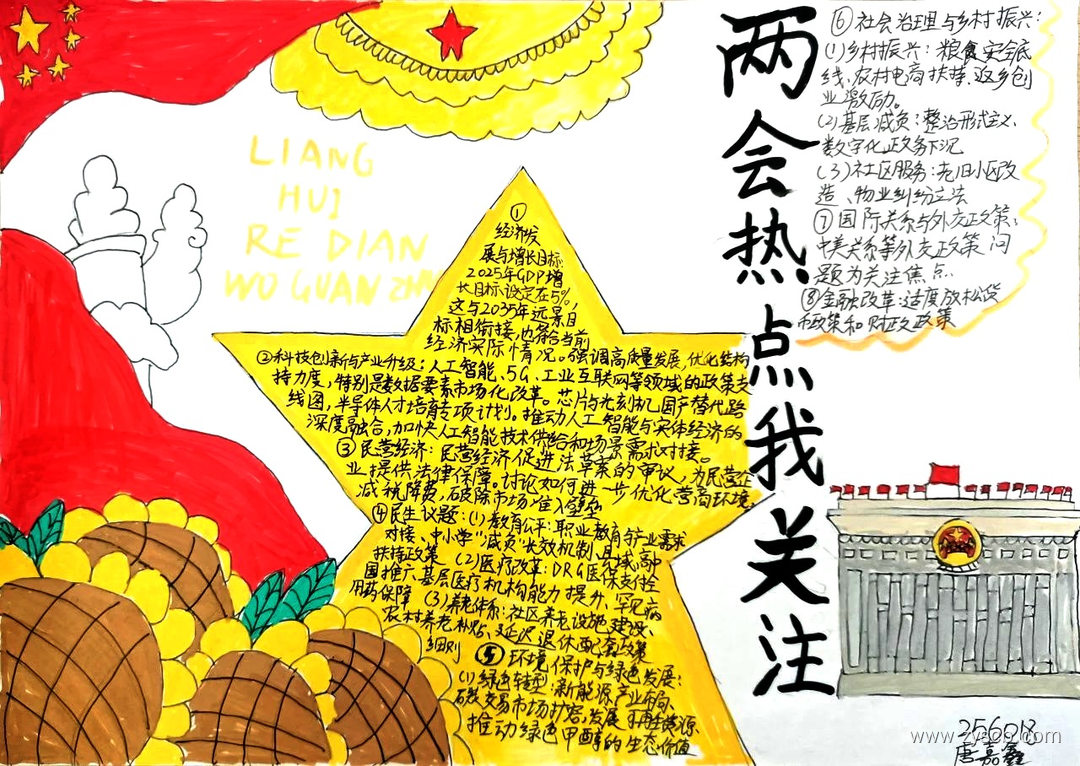 两会热点我关注
LIANG
HUI
RE DIAN
WO GUAN ZHU
①
经济发
展与增长目标
2025年GDP增
长目标设定在5%,
这与2035年远景目
标相衔接,也符合当前
经济实际情况。强调高质量发展,优化结构
②科技创新与产业升级:人工智能、5G、工业互联网等领域的政策支
持力度,特别是数据要素市场化改革。芯片与光刻机国产替代路
线图,半导体人才培育专项计划。推动人工智能与实体经济的
深度融合,加快人工智能技术供给和场景需求对接。
③民营经济:民营经济促进法草案的审议,为民营企
业提供法律保障。讨论如何进一步优化营商环境,
减税降费,破除市场准入壁垒
④民生议题:(1)教育公平:职业教育与产业需求
对接、中小学"减负"长效机制、县域高中
扶持政策 (2)医疗改革:DRG医保支付全
国推广、基层医疗机构能力提升、罕见病
用药保障 (3)养老体系:社区养老设施建设、
农村养老补贴、延迟退休配套政策
细则
⑤环境保护与绿色发展:
(1)绿色转型:新能源产业布局、
碳交易市场扩容,发展可再生能源,
推动绿色甲醇的生态价值
⑥社会治理与乡村振兴:
(1)乡村振兴:粮食安全底
线、农村电商扶持、返乡创
业激励。
(2)基层减负:整治形式主义、
数字化政务下沉
(3)社区服务:老旧小区改
造、物业纠纷立法
⑦国际关系与外交政策:
中美关系等外交政策问
题为关注焦点
⑧金融改革:适度放松货
币政策和财政政策
256013
唐嘉鑫
www.zyszb.com